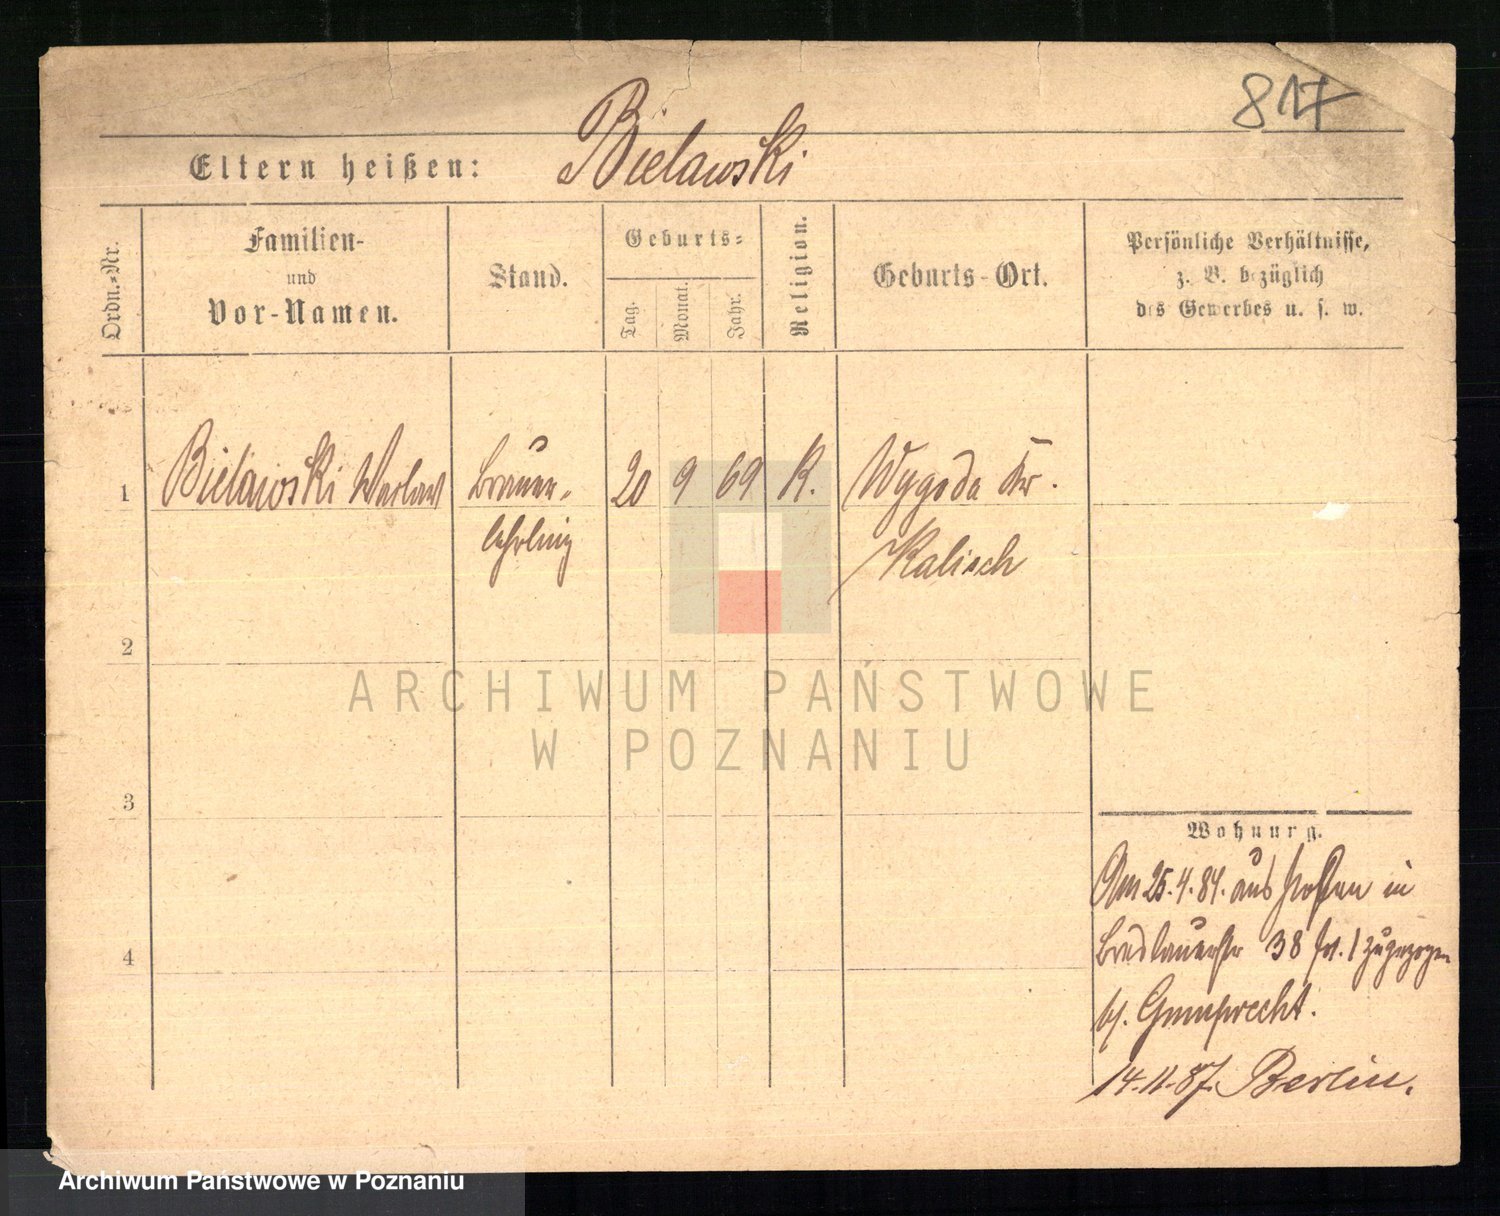 817
Eltern heißen: Bielawski
Ordn.-Nr.
Familien-
und
Vor-Namen.
Stand.
Geburts-
Tag.
Monat.
Jahr.
Religion.
Geburts-Ort.
Persönliche Verhältnisse,
z. B. bezüglich
des Gewerbes u. s. w.
1 Bielawski Waclaw Brauer- 20 9 69 K. Wygoda Kr.
lehrling Kalisch
2
3
4
Wohnung.
Am 25.4.84. aus in
Breslauerstr 38 I zugezogen
b/.
14.11.87. Berlin.
ARCHIWUM PAŃSTWOWE
W POZNANIU
Archiwum Państwowe w Poznaniu